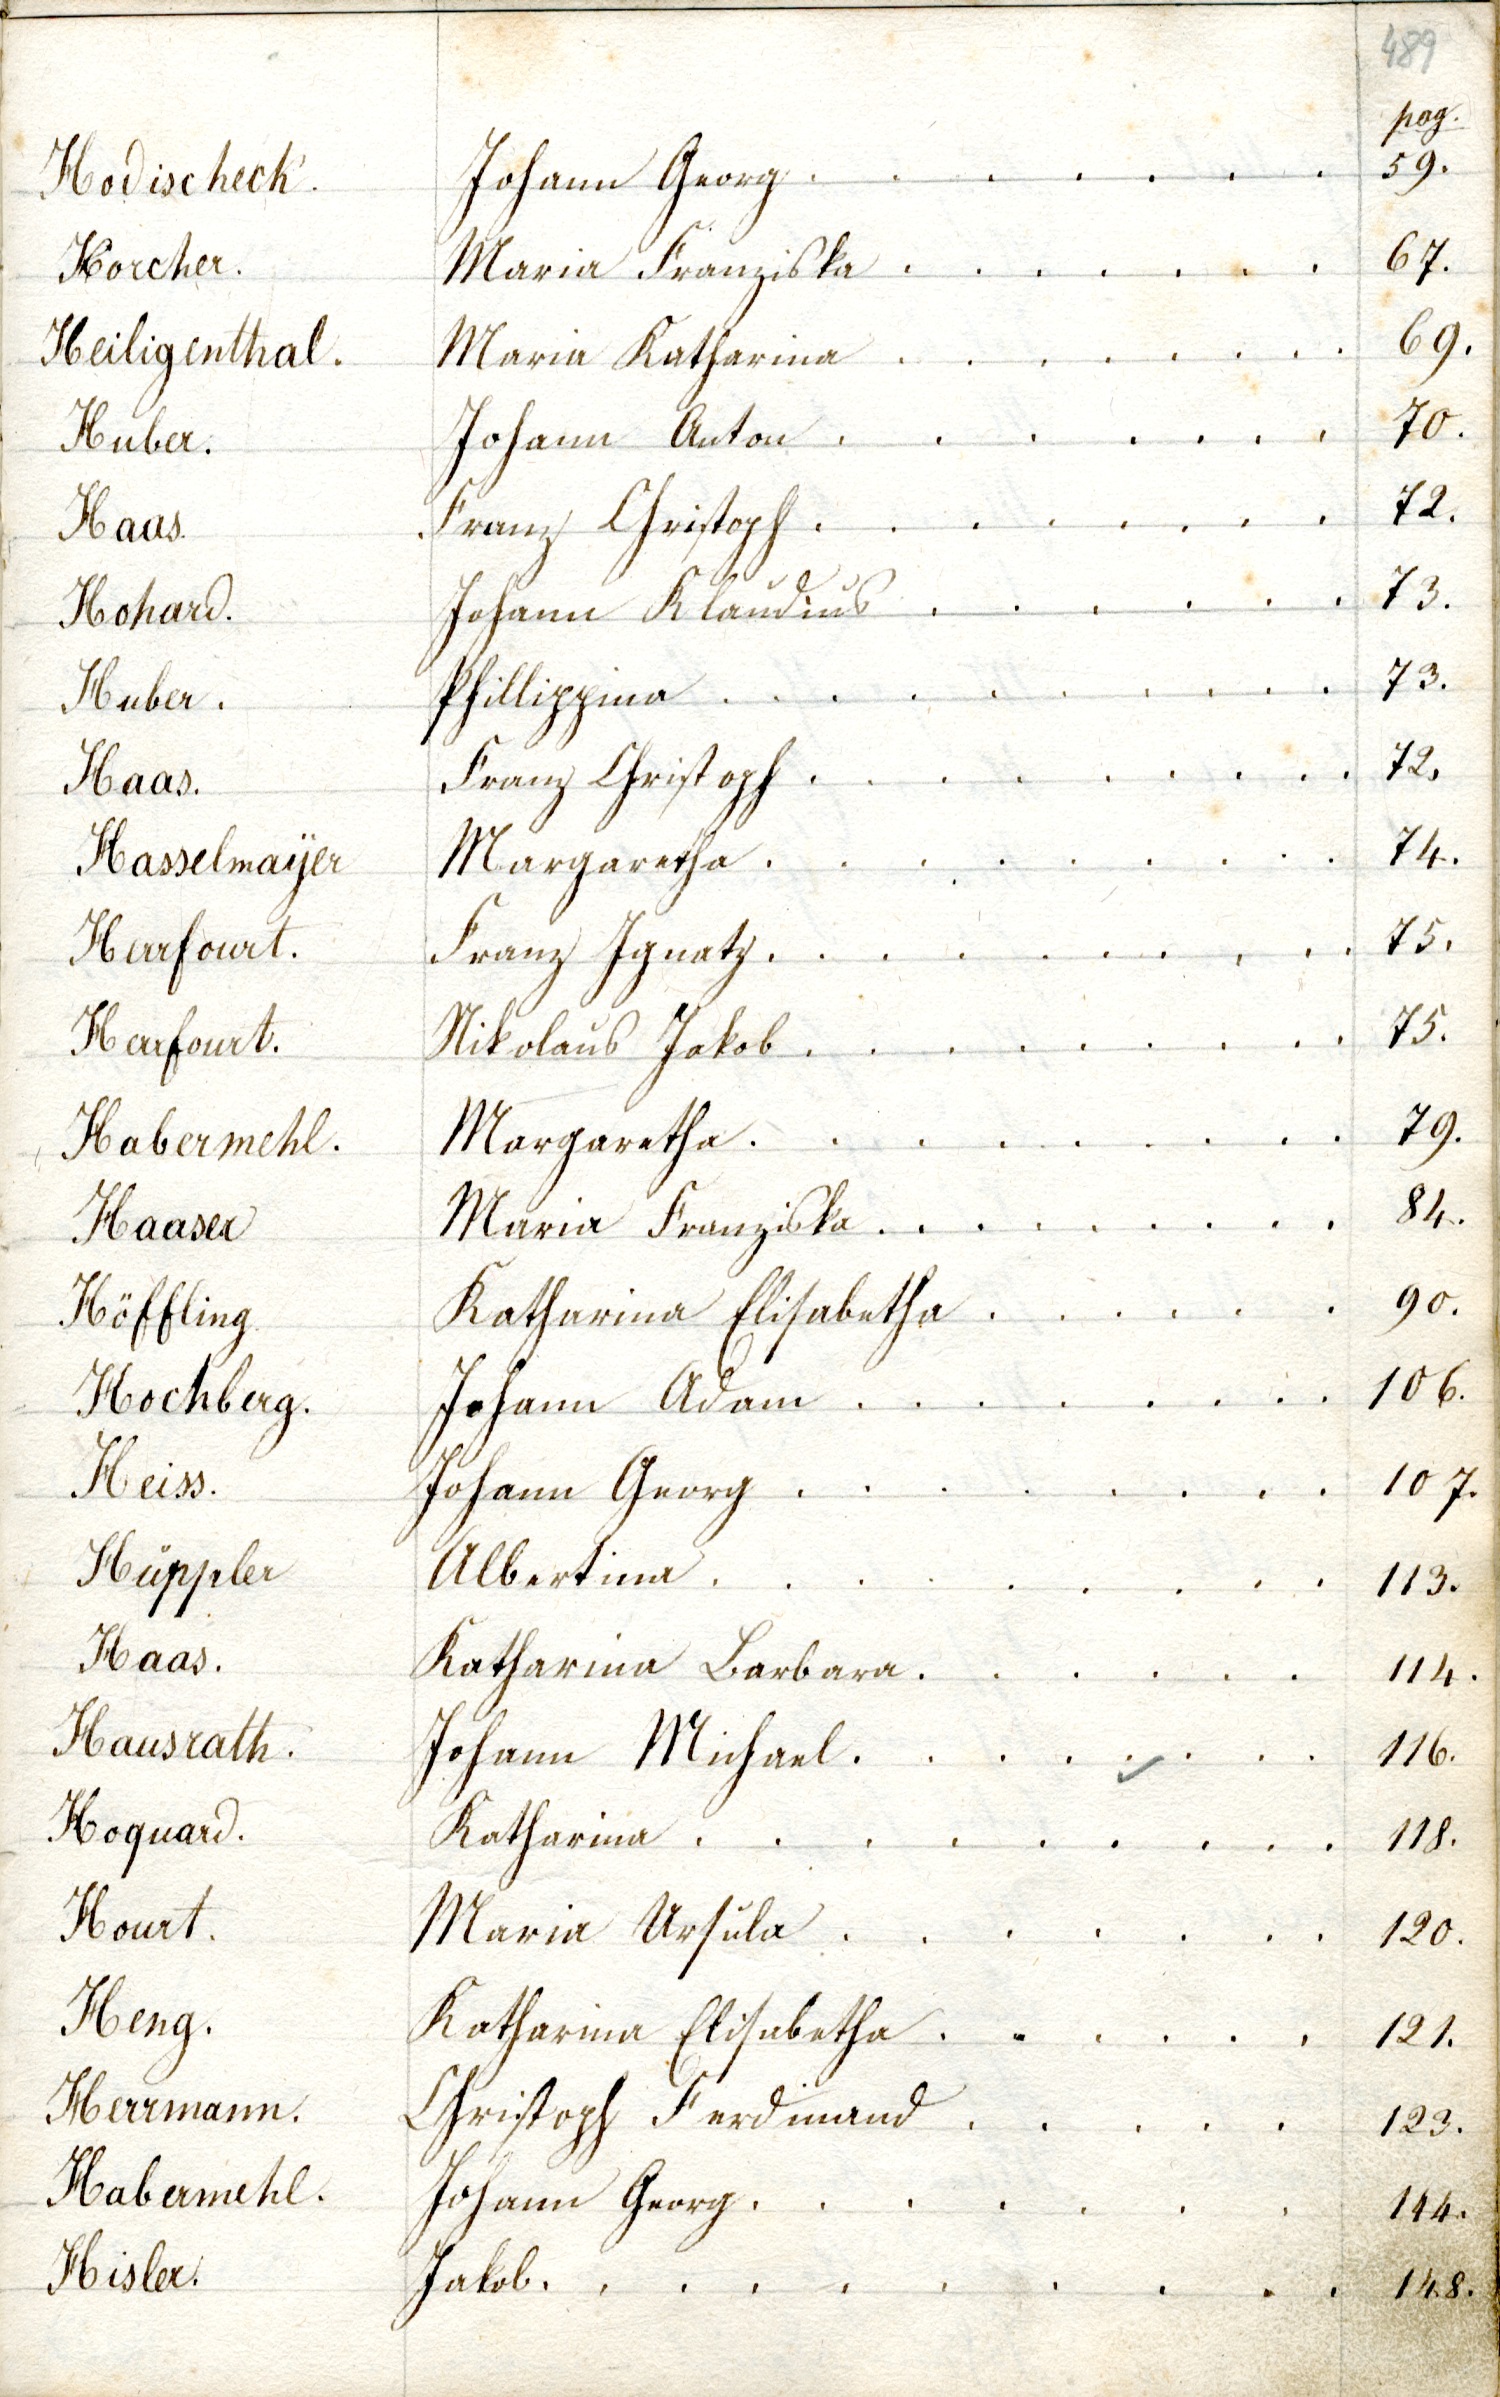 489
pag.
Hodischeck. Johann Georg . . . . . . . 59.
Horcher. Maria Franziska . . . . . . . 67.
Heiligenthal. Maria Katharina . . . . . . . . 69.
Huber. Johann Anton . . . . . . . . 70.
Haas. Franz Christoph . . . . . . . . 72.
Hohard. Johann Klaudius . . . . . . . 73.
Huber. Phillippina . . . . . . . . . 73.
Haas. Franz Christoph . . . . . . . . . 72.
Hasselmaÿer Margaretha . . . . . . . . . 74.
Harfourt. Franz Ignatz . . . . . . . . . 75.
Harfourt. Nikolaus Jakob . . . . . . . . . 75.
Habermehl. Margaretha . . . . . . . . . 79.
Haaser Maria Franziska . . . . . . . . . 84.
Höffling Katharina Elisabetha . . . . . . 90.
Hochberg. Johann Adam . . . . . . . . 106.
Heiss. Johann Georg . . . . . . . . 107.
Hüppler Albertina . . . . . . . . . 113.
Haas. Katharina Barbara . . . . . . 114.
Hausrath. Johann Michael . . . . . . . . 116.
Hoquard. Katharina . . . . . . . . . 118.
Hourt. Maria Ursula . . . . . . . 120.
Heng. Katharina Elisabetha . . . . . . 121.
Herrmann. Christoph Ferdinand . . . . . 123.
Habermehl. Johann Georg . . . . . . . 144.
Hisler. Jakob . . . . . . . . . . 148.